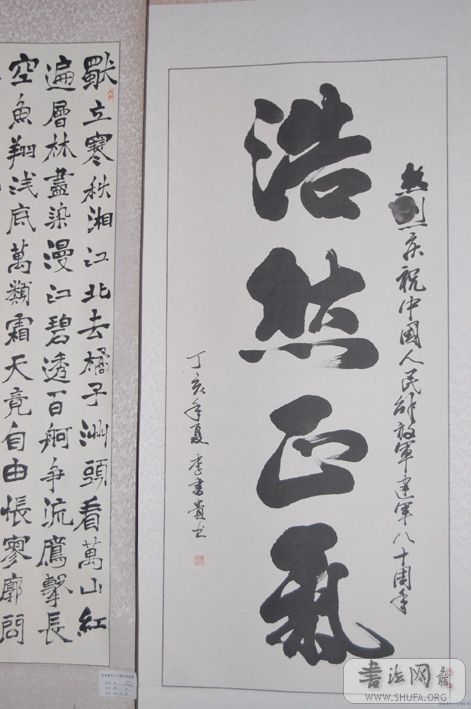 热烈庆祝中國人民解放軍建軍八十周年
浩然正氣
丁亥年夏 李書貴书
獨立寒秋湘江北去橘子洲頭看萬山紅
遍層林盡染漫江碧透百舸争流鷹擊長
空魚翔浅底萬類霜天竟自由悵寥廓問
書法网
WWW.SHUFA.ORG